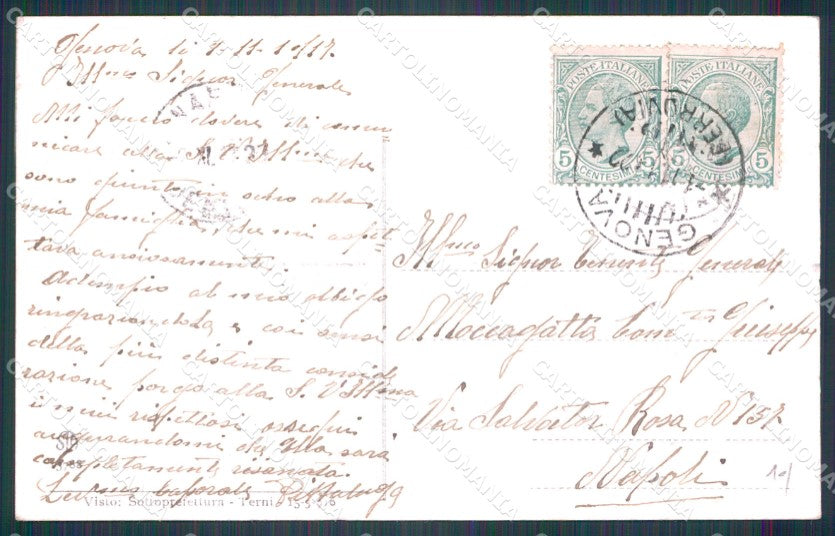 Genova li 7-11-1917.
Ill.mo Signor Generale
Mi faccio dovere di comu-
nicare alla S. V. Ill.ma che
sono giunto in seno alla
mia famiglia, che mi aspet-
tava ansiosamente.
Adempio al mio obbligo
ringraziandola e coi sensi
della più distinta conside-
razione porgo alla S. V. Ill.ma
i miei rispettosi ossequi
augurandomi che Ella sarà
completamente risanata.
caporale Pittaluga
Visto: Sottoprefettura - Terni
Ill.mo Signor Tenente Generale
Moccagatta Comm. Giuseppe
Via Salvator Rosa N 157
Napoli
POSTE ITALIANE
5 5
CENTESIMI
POSTE ITALIANE
5 5
CENTESIMI
GENOVA
FERROVIA
CARTOLINOMANIA